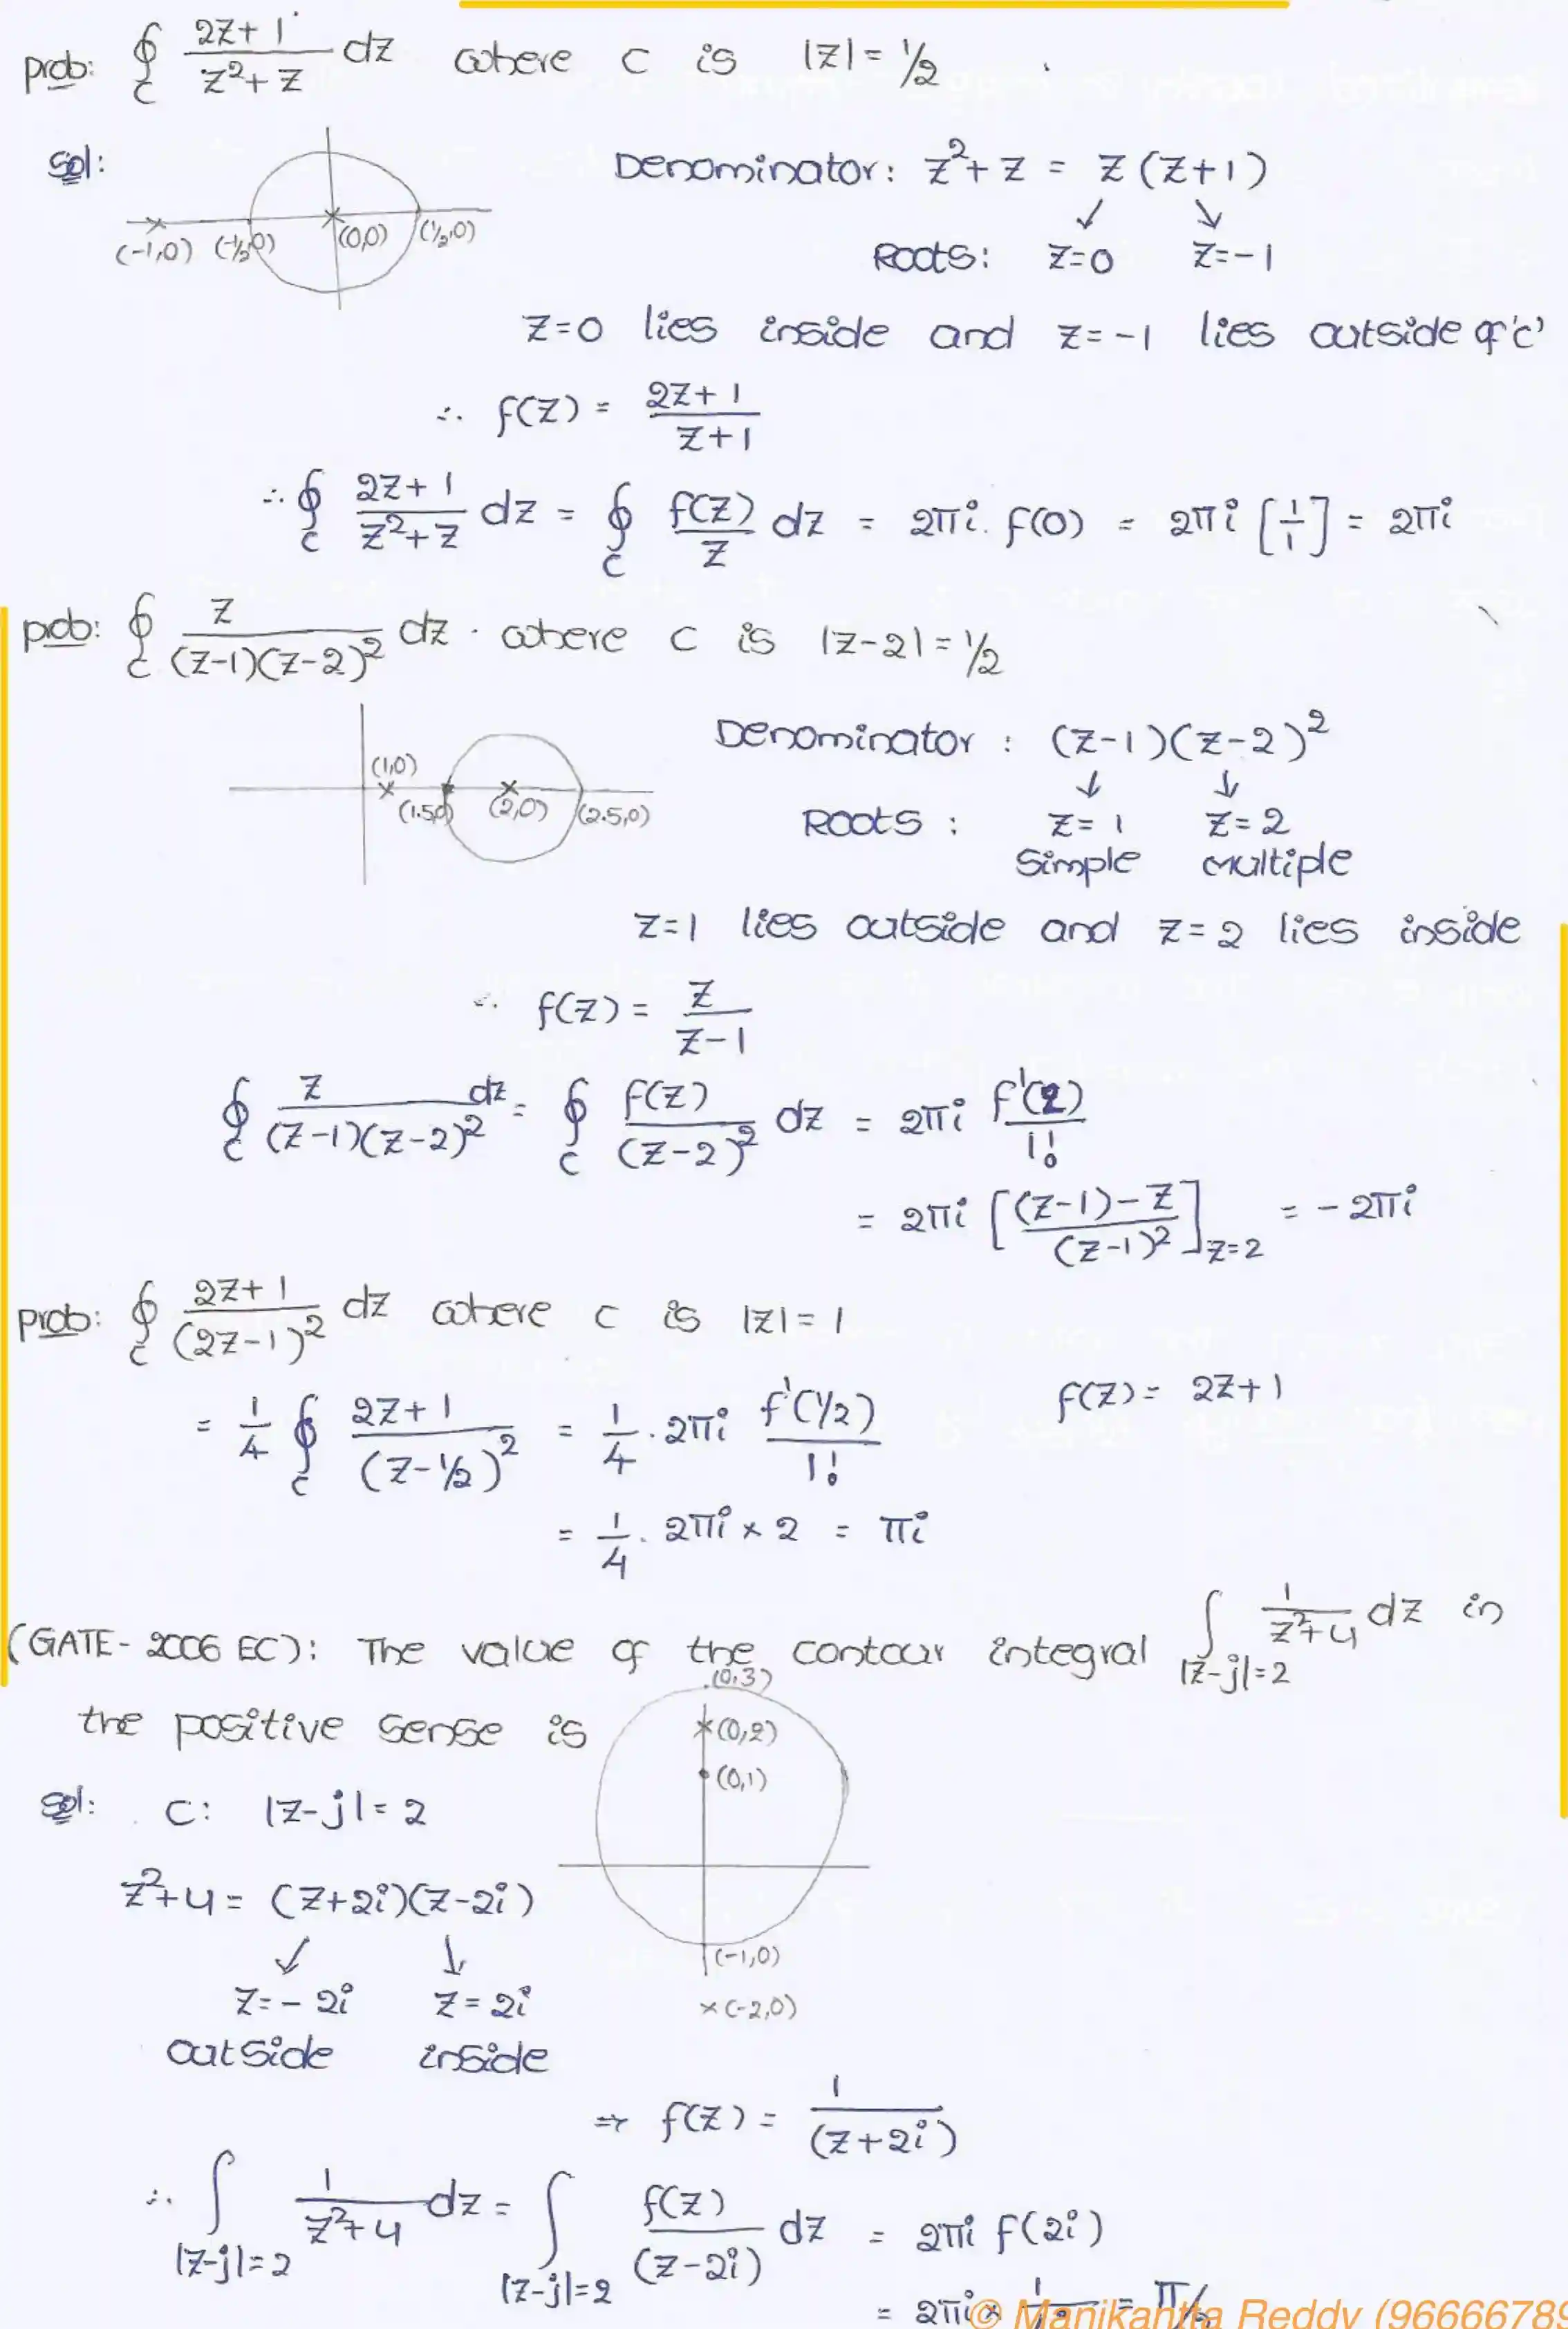 prob: ∮_C (2z+1)/(z²+z) dz where C is |z| = 1/2
Sol:
Denominator: z²+z = z(z+1)
Roots: z=0 z=-1
(-1,0) (-1/2,0) (0,0) (1/2,0)
z=0 lies inside and z=-1 lies outside of 'c'
∴ f(z) = (2z+1)/(z+1)
∴ ∮_C (2z+1)/(z²+z) dz = ∮_C f(z)/z dz = 2πi. f(0) = 2πi [1/1] = 2πi
prob: ∮_C z/((z-1)(z-2)²) dz . where C is |z-2| = 1/2
Denominator : (z-1)(z-2)²
(1,0) (1.5,0) (2,0) (2.5,0)
Roots : z=1 z=2
Simple multiple
z=1 lies outside and z=2 lies inside
∴ f(z) = z/(z-1)
∮_C z/((z-1)(z-2)²) dz = ∮_C f(z)/(z-2)² dz = 2πi f'(2)/1!
= 2πi [((z-1)-z)/(z-1)²]_{z=2} = -2πi
prob: ∮_C (2z+1)/(2z-1)² dz where C is |z| = 1
= 1/4 ∮_C (2z+1)/(z-1/2)² = 1/4 . 2πi f'(1/2)/1! f(z) = 2z+1
= 1/4 . 2πi × 2 = πi
(GATE-2006 EC): The value of the contour integral ∫_{|z-j|=2} 1/(z²+4) dz in
the positive sense is
(0,3)
(0,2)
(0,1)
Sol: C: |z-j| = 2
z²+4 = (z+2i)(z-2i)
(-1,0)
z=-2i z=2i
(-2,0)
outside inside
⇒ f(z) = 1/(z+2i)
∴ ∫_{|z-j|=2} 1/(z²+4) dz = ∫_{|z-j|=2} f(z)/(z-2i) dz = 2πi f(2i)
= 2πi × 1/ = π/
© Manikantta Reddy (96666789